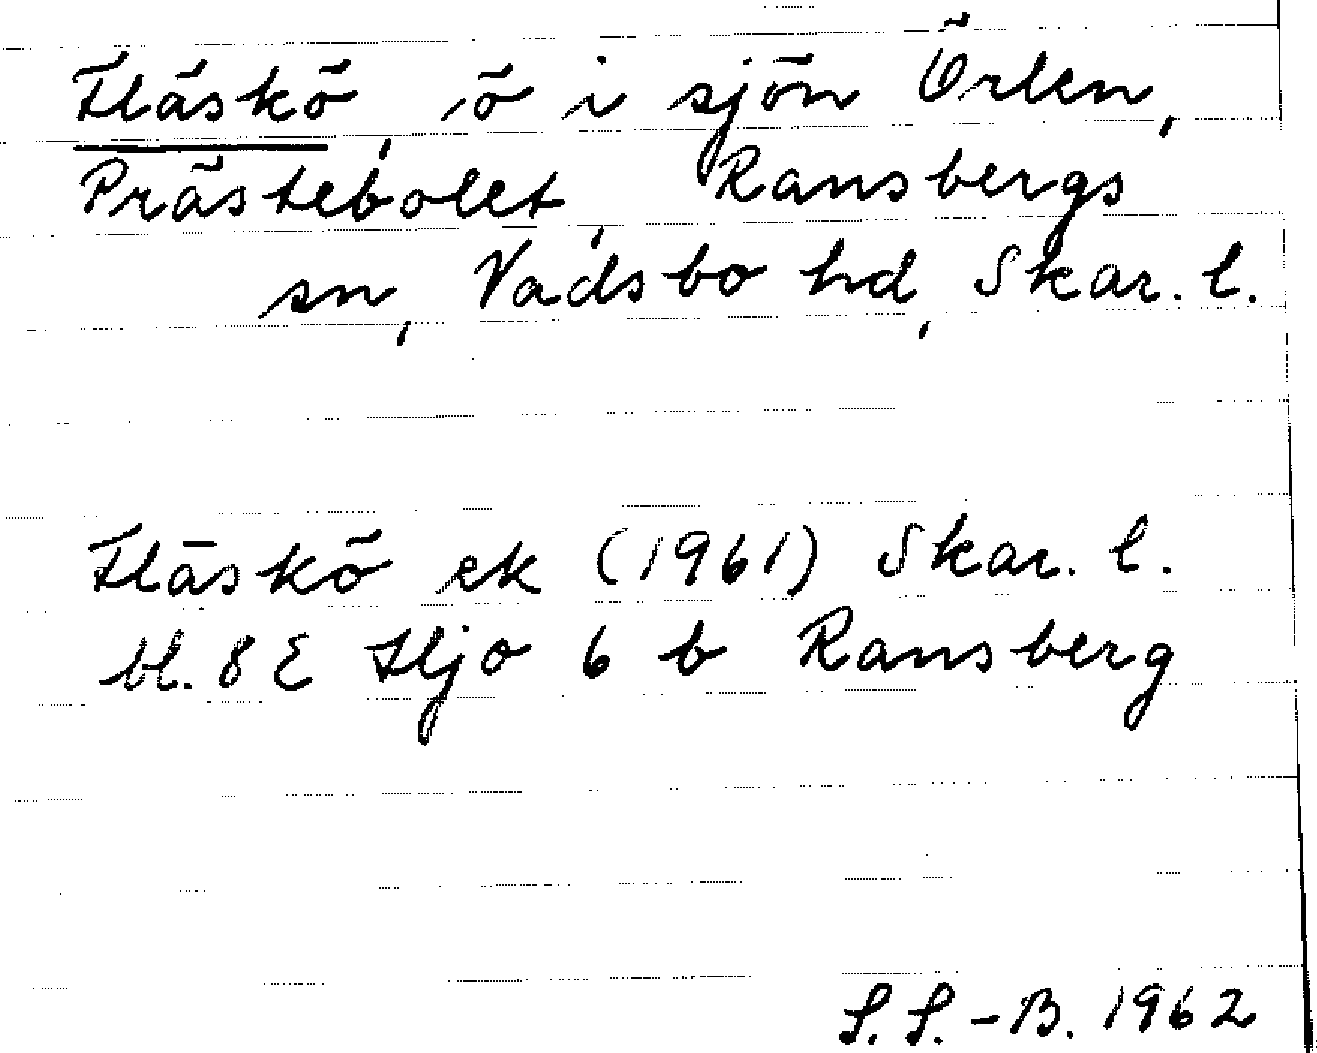 Fläskö, ö i sjön Örlen,
Prästebolet, Ransbergs
sn, Vadsbo hd, Skar. l.
Fläskö ek (1961) Skar. l.
bl. 8 E Hjo 6 b Ransberg
S. S.-B. 1962